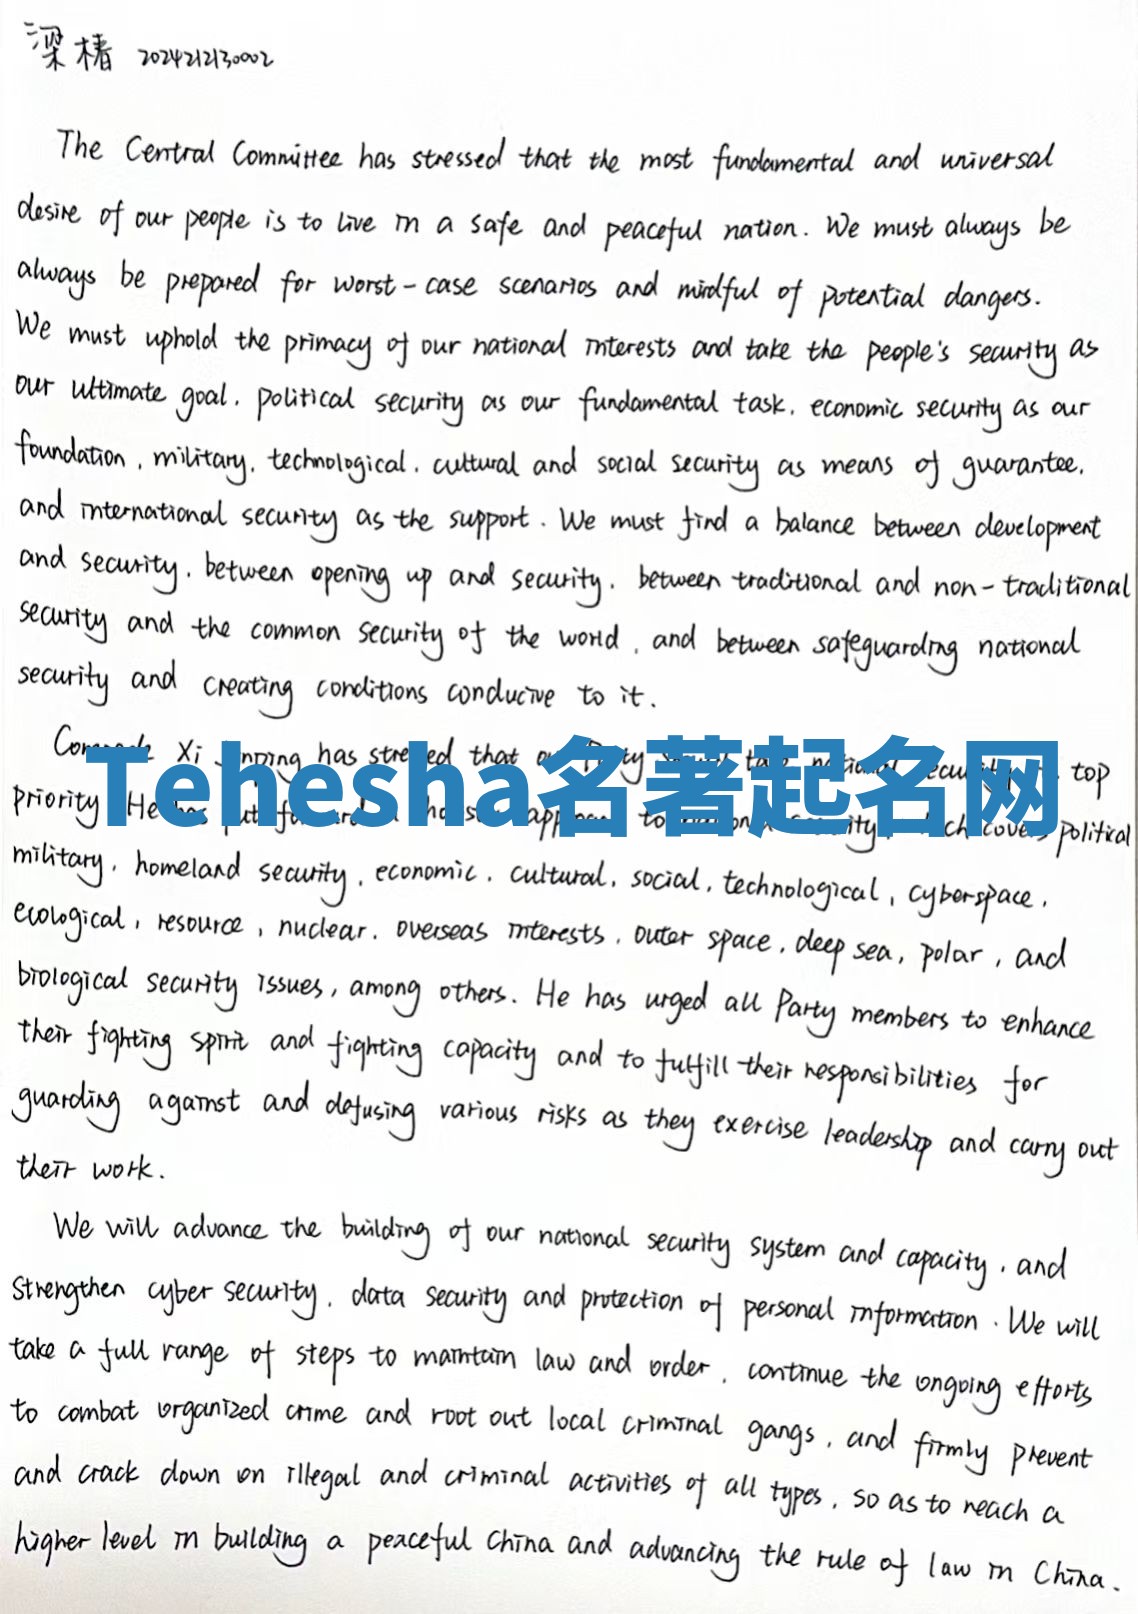 梁椿 2024212130002
The Central Committee has stressed that the most fundamental and universal
desire of our people is to live in a safe and peaceful nation. We must always be
always be prepared for worst-case scenarios and mindful of potential dangers.
We must uphold the primacy of our national interests and take the people's security as
our ultimate goal, political security as our fundamental task, economic security as our
foundation, military, technological, cultural and social security as means of guarantee,
and international security as the support. We must find a balance between development
and security, between opening up and security, between traditional and non-traditional
security and the common security of the world, and between safeguarding national
security and creating conditions conducive to it.
Xi has that top
Tehesha名著起名网
priority He political
military, homeland security, economic, cultural, social, technological, cyberspace,
ecological, resource, nuclear, overseas interests, outer space, deep sea, polar, and
biological security issues, among others. He has urged all Party members to enhance
their fighting spirit and fighting capacity and to fulfill their responsibilities for
guarding against and defusing various risks as they exercise leadership and carry out
their work.
We will advance the building of our national security system and capacity, and
strengthen cyber security, data security and protection of personal information. We will
take a full range of steps to maintain law and order, continue the ongoing efforts
to combat organized crime and root out local criminal gangs, and firmly prevent
and crack down on illegal and criminal activities of all types, so as to reach a
higher level in building a peaceful China and advancing the rule of law in China.